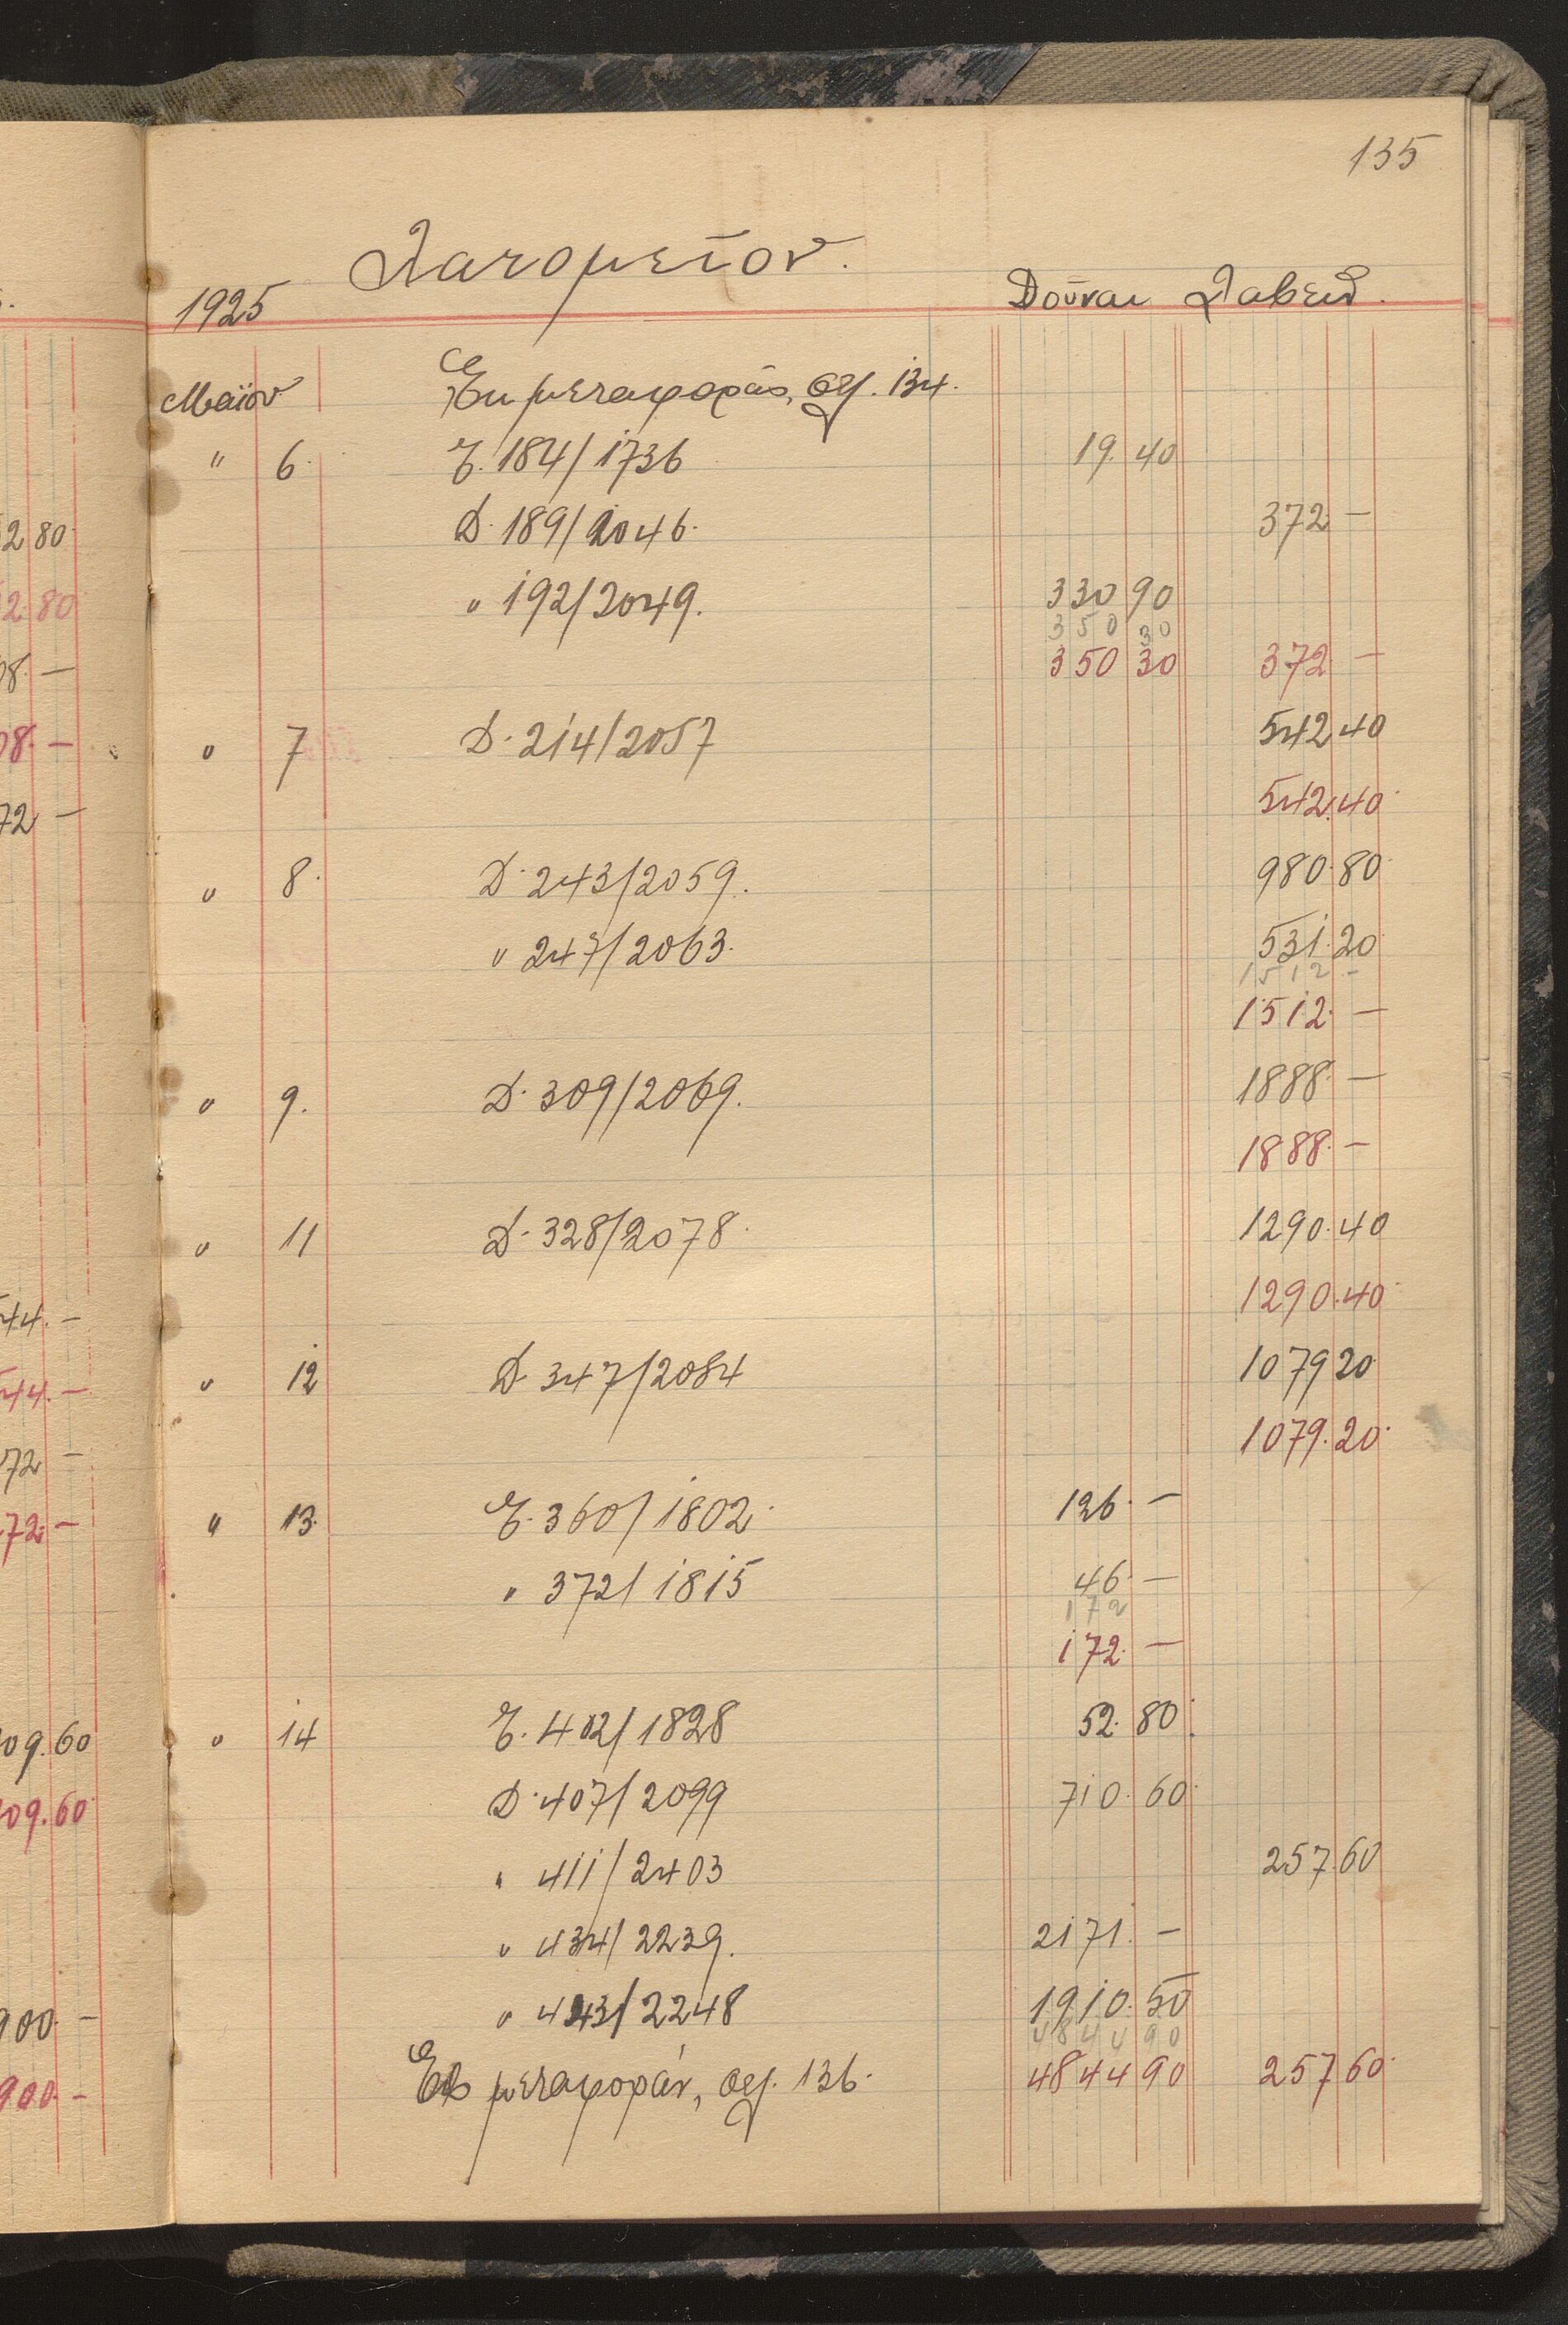 135
Λατομεῖον.
1925 Δοῦναι Λαβεῖν.
Μαΐου Ἐκ μεταφορᾶς, σελ. 134.
" 6. Ε. 184/1736 19.40
Δ. 189/2046. 372 —
" 192/2049. 330 90
350 30
350 30 372 —
" 7 Δ. 214/2057 542 40
542.40
" 8. Δ. 243/2059. 980.80
" 247/2063. 531.20
1512 -
1512. —
" 9. Δ. 309/2069. 1888. —
1888. —
" 11 Δ. 328/2078. 1290.40
1290.40
" 12 Δ. 347/2084 1079 20
1079.20
" 13. Ε. 360/1802. 126. —
" 372/1815 46. —
172
172. —
" 14 Ε. 402/1828 52.80
Δ. 407/2099 710.60
" 411/2403 257.60
" 434/2239. 2171. —
" 443/2248 1910.50
4844 90
Εἰς μεταφοράν, σελ. 136. 4844 90 257 60
2 80
2.80
8. —
8. —
72 —
44. —
44. —
72 —
72. —
09.60
09.60
900. —
900. —